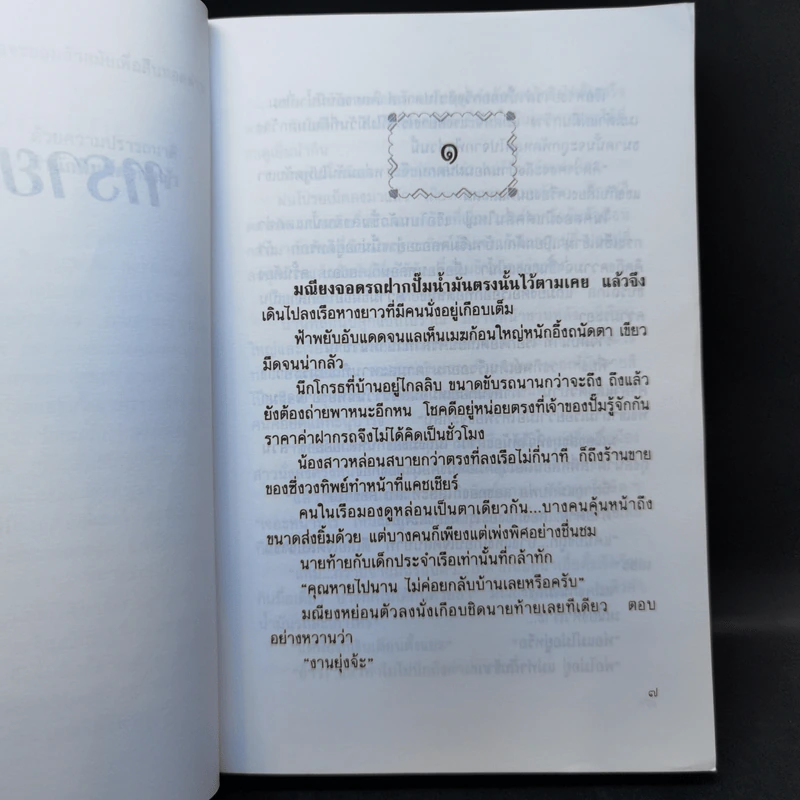 ๑
มณียงจอดรถฝากปั๊มน้ำมันตรงนั้นไว้ตามเคย แล้วจึง
เดินไปลงเรือหางยาวที่มีคนนั่งอยู่เกือบเต็ม
ฟ้าพยับอับแดดจนแลเห็นเมฆก้อนใหญ่หนักอึ้งถนัดตา เขียว
มืดจนน่ากลัว
นึกโกรธที่บ้านอยู่ไกลลิบ ขนาดขับรถนานกว่าจะถึง ถึงแล้ว
ยังต้องถ่ายพาหนะอีกหน โชคดีอยู่หน่อยตรงที่เจ้าของปั๊มรู้จักกัน
ราคาค่าฝากรถจึงไม่ได้คิดเป็นชั่วโมง
น้องสาวหล่อนสบายกว่าตรงที่ลงเรือไม่กี่นาที ก็ถึงร้านขาย
ของซึ่งวงทิพย์ทำหน้าที่แคชเชียร์
คนในเรือมองดูหล่อนเป็นตาเดียวกัน...บางคนคุ้นหน้าถึง
ขนาดส่งยิ้มด้วย แต่บางคนก็เพียงแต่เพ่งพิศอย่างชื่นชม
นายท้ายกับเด็กประจำเรือเท่านั้นที่กล้าทัก
“คุณหายไปนาน ไม่ค่อยกลับบ้านเลยหรือครับ”
มณียงหย่อนตัวลงนั่งเกือบชิดนายท้ายเลยทีเดียว ตอบ
อย่างหวานว่า
“งานยุ่งจ้ะ”
๗